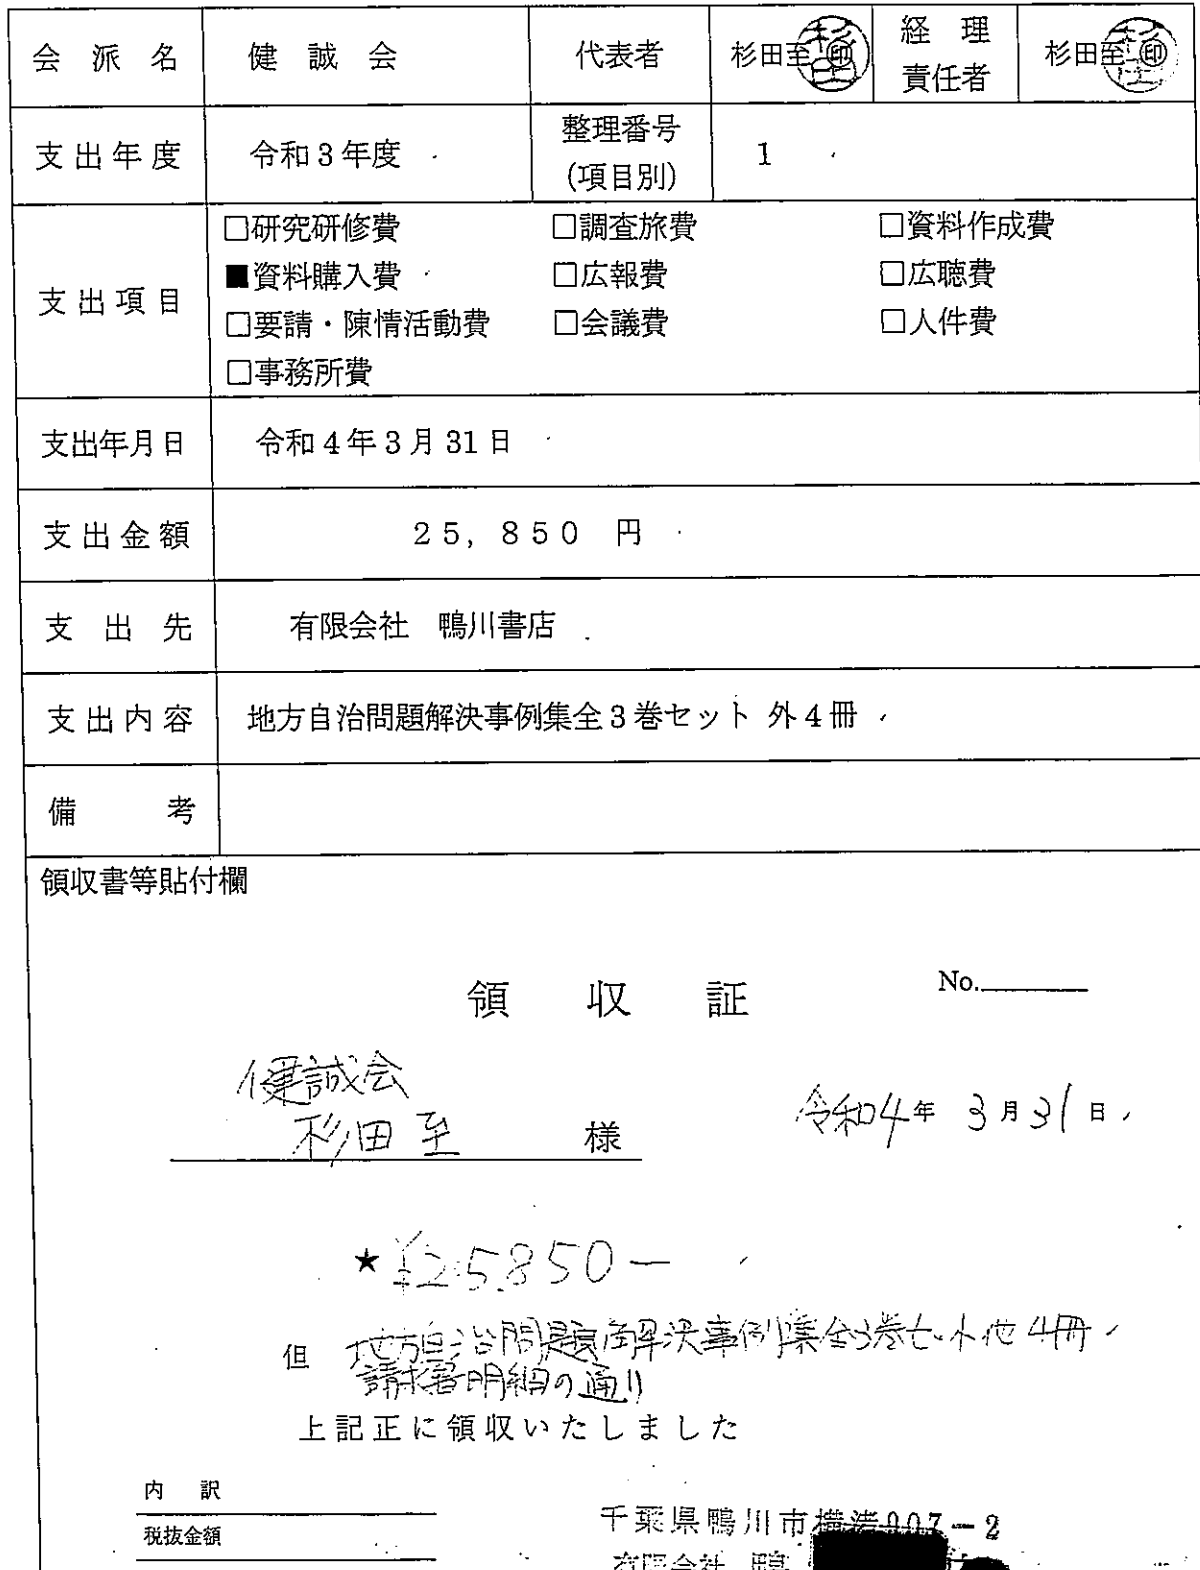 会派名 健誠会 代表者 杉田至 ㊞ 経理責任者 杉田至 ㊞
支出年度 令和3年度 整理番号(項目別) 1
支出項目
□研究研修費 □調査旅費 □資料作成費
■資料購入費 □広報費 □広聴費
□要請・陳情活動費 □会議費 □人件費
□事務所費
支出年月日 令和4年3月31日
支出金額 25,850 円
支出先 有限会社 鴨川書店
支出内容 地方自治問題解決事例集全3巻セット 外4冊
備考
領収書等貼付欄
領収証 No.
健誠会
杉田至 様 令和4年 3月31日
★ ¥25,850ー
但 地方自治問題解決事例集全3巻セット他4冊
請求書明細の通り
上記正に領収いたしました
内訳
税抜金額
千葉県鴨川市横渚907-2
有限会社 鴨